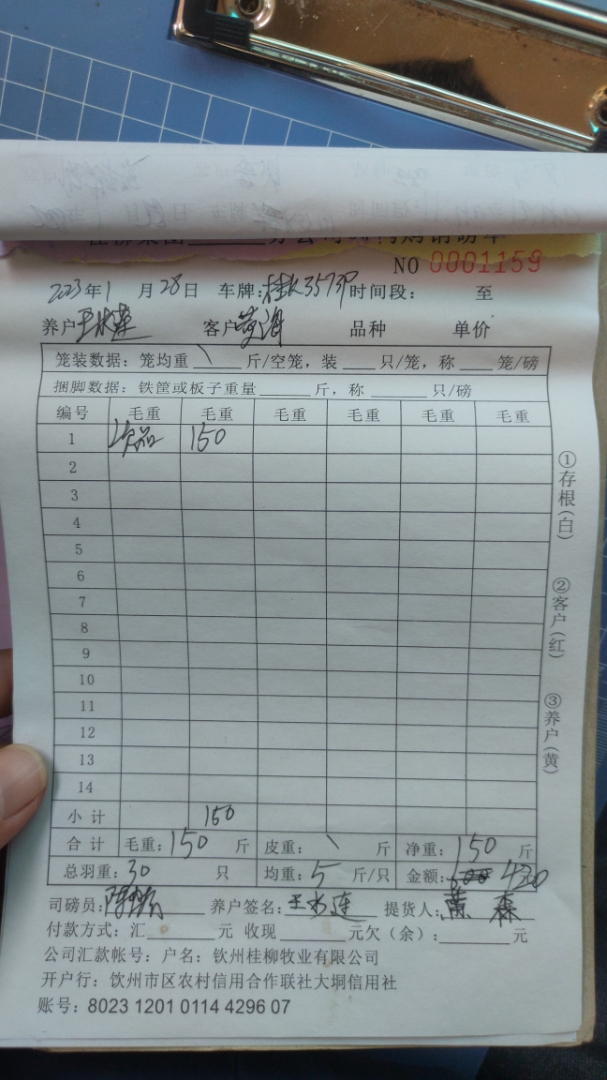 NO 0001159
2023年1月28日 车牌: 时间段: 至
养户王水莲 客户黄海 品种 单价
笼装数据: 笼均重\斤/空笼，装 只/笼，称 笼/磅
捆脚数据: 铁筐或板子重量 斤，称 只/磅
编号 毛重 毛重 毛重 毛重 毛重 毛重
1 次品 150
2
3
4
5
6
7
8
9
10
11
12
13
14
小计 150
合计 毛重:150斤 皮重:\斤 净重:150斤
总羽重:30只 均重:5斤/只 金额: 420
司磅员: 养户签名:王水连 提货人:黄森
付款方式: 汇 元 收现 元欠（余）: 元
公司汇款帐号: 户名: 钦州桂柳牧业有限公司
开户行: 钦州市区农村信用合作联社大垌信用社
账号: 8023 1201 0114 4296 07
①存根(白)
②客户(红)
③养户(黄)